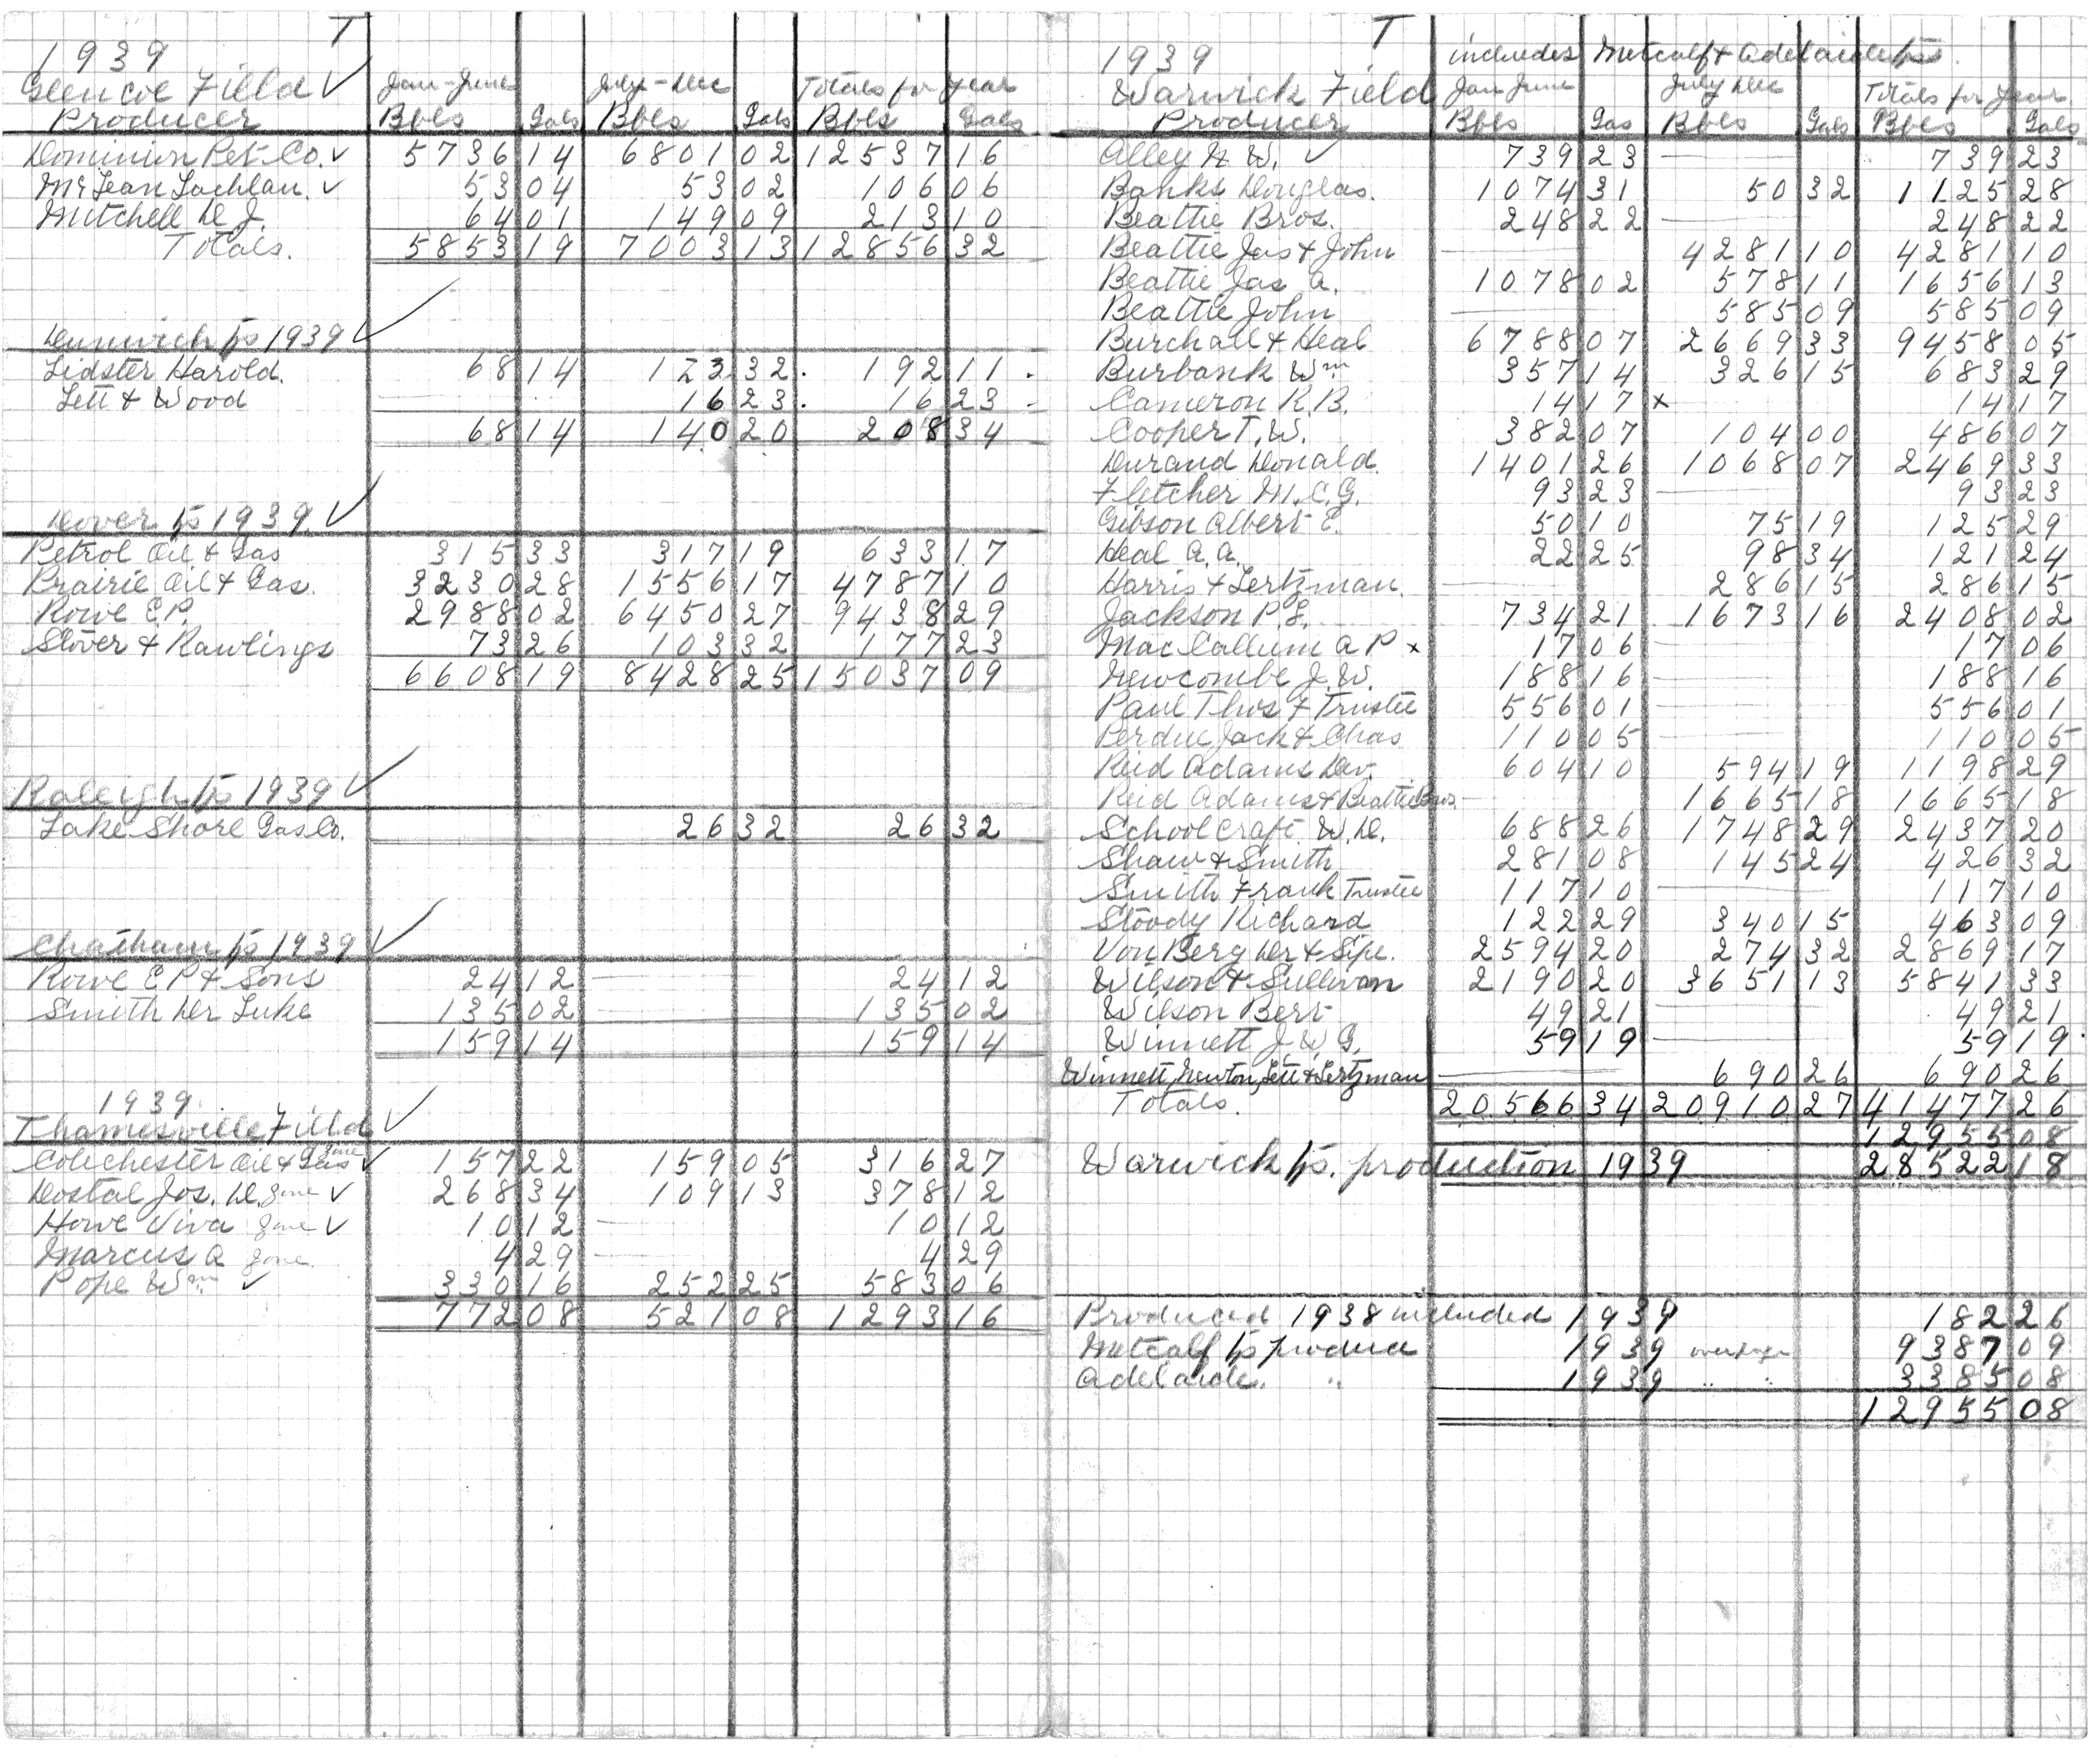 T
1939
Glencoe Field ✓ Jan-June July-Dec Totals for Year
Producer Bbls Gals Bbls Gals Bbls Gals
Dominion Pet. Co. ✓ 5736 14 6801 02 12537 16
McLean Lachlan. ✓ 53 04 53 02 106 06
Mitchell D J. 64 01 149 09 213 10
Totals. 5853 19 7003 13 12856 32
Dunwich tp 1939 ✓
Lidster Harold. 68 14 123 32. 192 11.
Lett & Wood 16 23. 16 23
68 14 140 20 208 34
Dover tp 1939 ✓
Petrol Oil & Gas 315 33 317 19 633 17
Prairie Oil & Gas. 3230 28 1556 17 4787 10
Rowe E.P. 2988 02 6450 27 9438 29
Stover & Rawlings 73 26 103 32 177 23
6608 19 8428 25 15037 09
Raleigh tp 1939 ✓
Lake Shore Gas Co. 26 32 26 32
Chatham tp 1939 ✓
Rowe E P & Sons 24 12 24 12
Smith Dr Luke 135 02 135 02
159 14 159 14
1939
Thamesville Field ✓
Colchester Oil & Gas Zone ✓ 157 22 159 05 316 27
Dostal Jos. D. Zone ✓ 268 34 109 13 378 12
Howe Viva Zone ✓ 10 12 10 12
Marcus A Zone. 4 29 4 29
Pope Wm ✓ 330 16 252 25 583 06
772 08 521 08 1293 16
T
1939 includes Metcalf & Adelaide tps
Warwick Field Jan June July Dec Totals for Year
Producer Bbls Gas Bbls Gals Bbls Gals
Alley H W. ✓ 739 23 739 23
Banks Douglas. 1074 31 50 32 1125 28
Beattie Bros. 248 22 248 22
Beattie Jas & John 4281 10 4281 10
Beattie Jas A. 1078 02 578 11 1656 13
Beattie John 585 09 585 09
Burchall & Heal 6788 07 2669 33 9458 05
Burbank Wm 357 14 326 15 683 29
Cameron R.B. 14 17 x 14 17
Cooper T. W. 382 07 104 00 486 07
Durand Donald. 1401 26 1068 07 2469 33
Fletcher M. C. G. 93 23 93 23
Gibson Albert E. 50 10 75 19 125 29
Heal A. A. 22 25 98 34 121 24
Harris & Lertzman. 286 15 286 15
Jackson P. L. 734 21 1673 16 2408 02
Mac Callum A P x 17 06 17 06
Newcombe J. W. 188 16 188 16
Paul Thos & Trustee 556 01 556 01
Perdue Jack & Chas 110 05 110 05
Reid Adams Dev. 604 10 594 19 1198 29
Reid Adams & Beattie Bros 1665 18 1665 18
Schoolcraft W. D. 688 26 1748 29 2437 20
Shaw & Smith 281 08 145 24 426 32
Smith Frank Trustee 117 10 117 10
Stoody Richard 122 29 340 15 463 09
Von Berg Dr & Sipe. 2594 20 274 32 2869 17
Wilson & Sullivan 2190 20 3651 13 5841 33
Wilson Bert 49 21 49 21
Winnett J. W G. 59 19 59 19
Winnett, Newton, Lett & Lertzman 690 26 690 26
Totals. 20566 34 20910 27 41477 26
12955 08
Warwick tp. production 1939 28522 18
Produced 1938 included 1939 182 26
Metcalf tp produced 1939 over page 9387 09
Adelaide. " 1939 " " 3385 08
12955 08